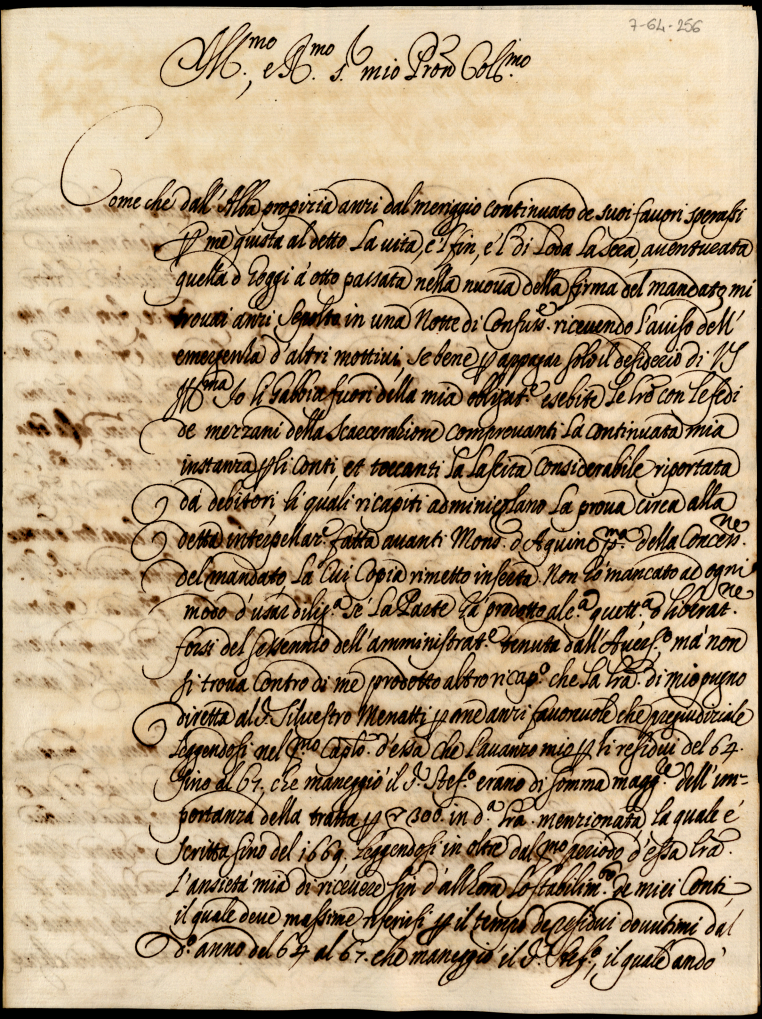 7-64-256
Ill.mo, e R.mo s. mio Pron Coll.mo
Come che dall'Alba propizia anzi dal meriggio continuato de suoi favori sperassi
me giusta al detto La vita, e'l fin, e'l dì Loda La sera, aventurata
quella d'hoggi à otto passata nella nuova della firma del mandato mi
trovai anzi sepolto in una Notte di Confus.e ricevendo l'aviso dell'
emergenza d'altri mottivi, se bene p appagar solo il desiderio di VS
Ill.ma Io li habbia fuori della mia obligat.e esebite Le lrẽ con Le fedi
de mezzani della Scaecerazione comprovanti La continuata mia
instanza p li Conti, et toccanti La Lascita Considerabile riportata
dà debitori li quali ricapiti adminicolano La prova circa alla
detta interpellaz.e fatta avanti Mons. d'Aquino p.ma della Concess.ne
del mandato La cui Copia rimetto inserta. Non hò mancato ad ogni
modo d'usar dilig.a se La Parte hà prodotto alc.a quett.a d liberat.ne
forsi del sessennio dell'amministrat.e tenuta dall'Avers.o, mà non
si trova Contro di me prodotto altro ricap.o che La lrã. di mio pugno
diretta al S. Silvestro Menatti p me anzi favorevole che pregiudiziale
Leggendosi nel p.mo Caplo. d'essa che l'avanzo mio p li residui del 64.
sino al 67. che maneggiò il S. Stef.o erano di somma magg.re dell'im-
portanza della tratta p 300. in d.a lrã. menzionata la quale è
scritta sino del 1669. Leggendosi in oltre dal p.mo periodo d'essa lrã.
L'ansietà mia di ricevere sin d'all'hora Lo stabilim.to de miei Conti
il quale deve massime riferirsi p il tempo de residui dovutimi dal
d.o anno del 64 al 67. che maneggiò il S. Stef.o, il quale andò